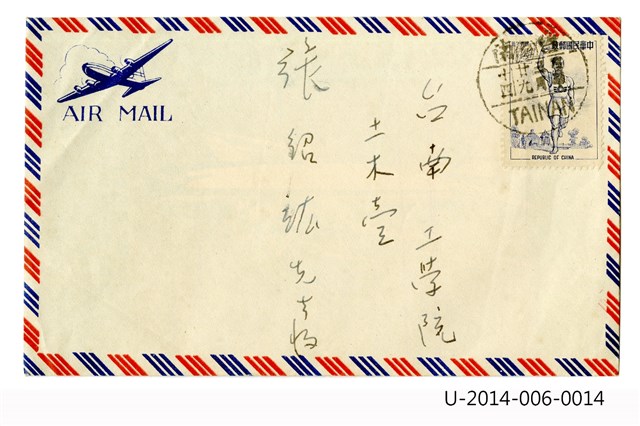 AIR MAIL
政郵國民華中
TAINAN
REPUBLIC OF CHINA
台南 工學院
土木
張紹 先生收
U-2014-006-0014